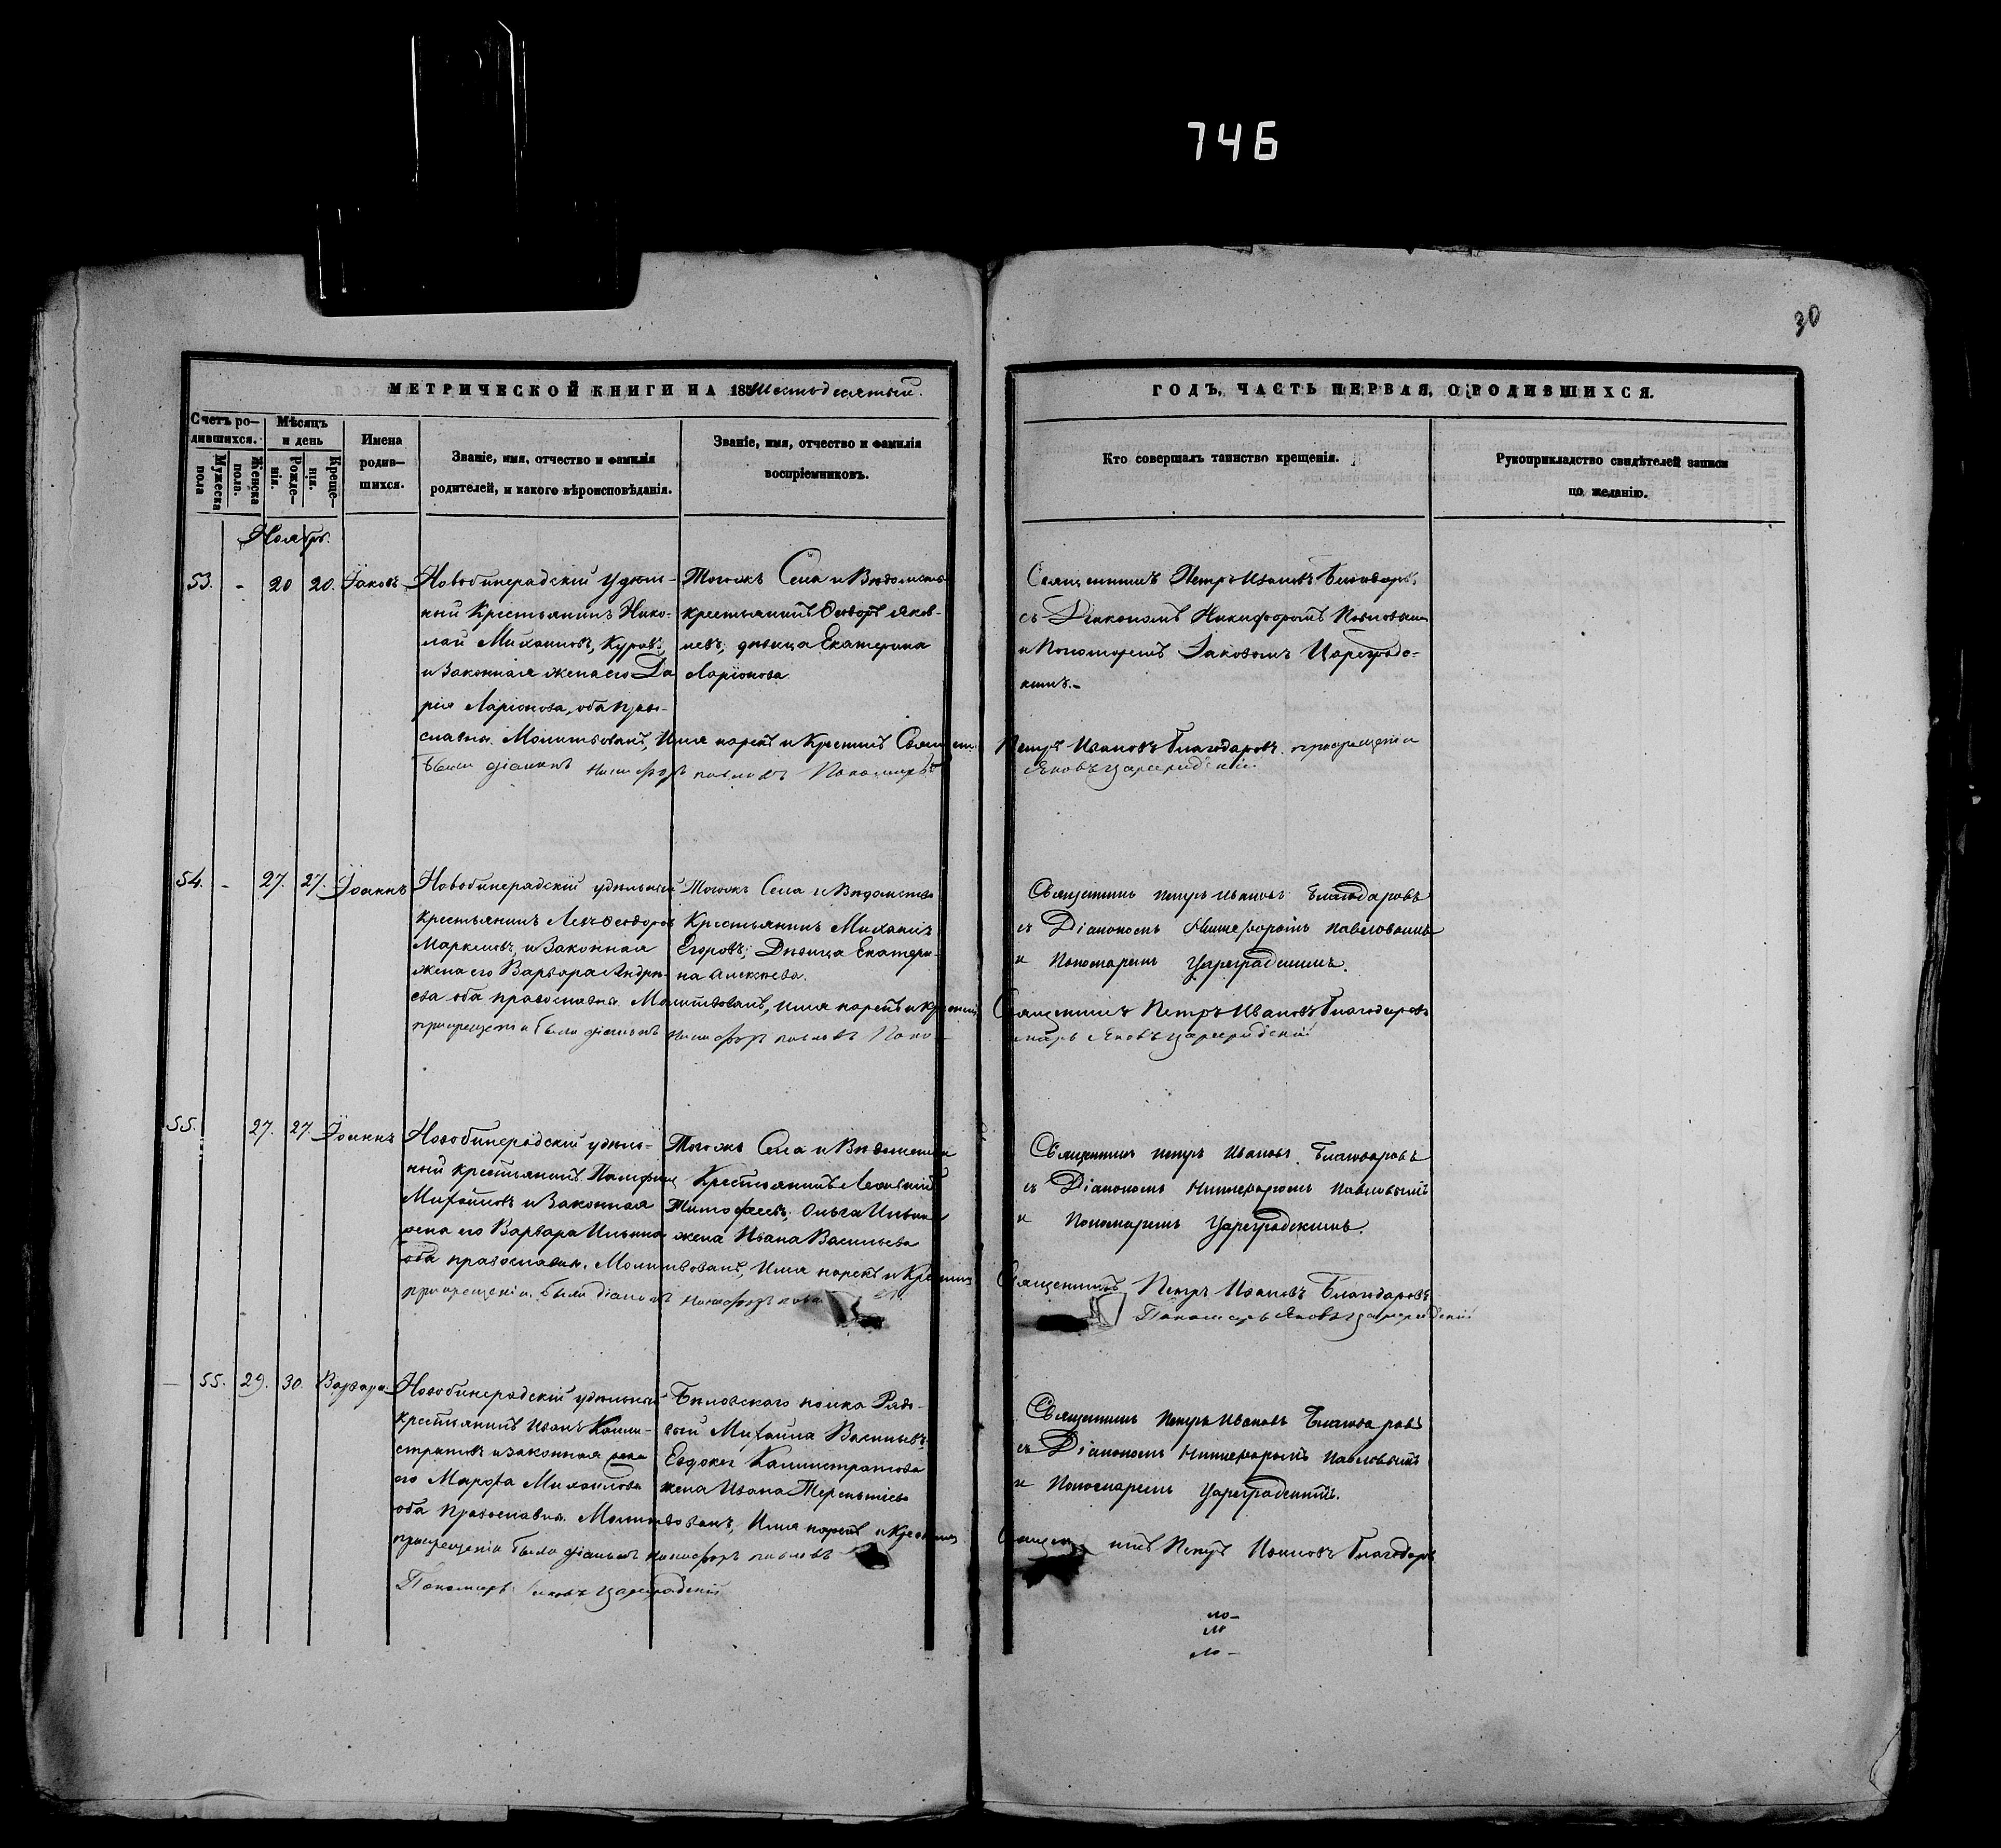 746
30
МЕТРИЧЕСКОЙ КНИГИ НА 18 Шестьдесятый.
Счетъ ро-
дившихся.
Мужеска
пола
Женска
пола.
Мѣсяцъ
и день
Рожде-
нія.
Креще-
нія.
Имена
родив-
шихся.
Званіе, имя, отчество и фамилія
родителей, и какого вѣроисповѣданія.
Званіе, имя, отчество и фамилія
воспріемниковъ.
ГОДЪ, ЧАСТЬ ПЕРВАЯ, О РОДИВШИХСЯ.
Кто совершалъ таинство крещенія.
Рукоприкладство свидѣтелей записи
по желанію.
Ноябрь.
53. - 20 20. Іаковъ
Новобинерадскій удѣль-
ный Крестьянинъ Нико-
лай Михаиловъ, Куровъ,
и Законная жена его Да
рія Ларіонова, оба Право-
славны. Молитвовалъ, Имя нарекъ и Крестилъ Священ
были діаконъ Никифоръ павловъ Пономарь
Тогожъ Села и Вѣдомства
крестьянинъ Ѳеодоръ Яков-
левъ; дѣвица Екатерина
Ларіонова
Священникъ Петръ Ивановъ Благодаровъ,
съ Діакономъ Никифоромъ Павловымъ
и Пономаремъ Іаковомъ Цареградс-
кимъ.-
Петръ Ивановъ Благодаровъ. прикрещеніи
Яковъ Цареградскій
54. - 27. 27. Іоаннъ
Новобинерадскій удѣльный
крестьянинъ Левъ Ѳеодоров
Маркеловъ, и Законная
жена его Варвара Андрѣ-
ева оба православны. Молитвовалъ, имя нарекъ и Крестилъ
прикрещеніи были діаконъ Никифоръ павловъ Поно
Тогожъ Села и Вѣдомства
Крестьянинъ Михаилъ
Егоровъ; Дѣвица Екатери-
на Алексѣева.
Священникъ Петръ Ивановъ Благодаровъ
съ Діакономъ Никифоромъ Павеловымъ
и Пономаремъ Цареградскимъ.
Священникъ Петръ Ивановъ Благодаровъ
марь Яковъ Цареградскій
55. 27. 27. Іоаннъ
Новобинерадскій удѣль-
ный крестьянинъ
Михайловъ и Законная
жена его Варвара Ильина
оба православны. Молитвовалъ, Имя нарекъ и Крестилъ
прикрещеніи были діаконъ Никифоръ
Тогожъ Села и Вѣдомства
Крестьянинъ Леонтій
Тимофеевъ; Ольга Ильина
жена Ивана Васильева
Священникъ Петръ Ивановъ Благодаровъ
съ Діакономъ Никифоромъ Павловымъ
и Пономаремъ Цареградскимъ.
Священникъ Петръ Ивановъ Благодаровъ
Пономарь Яковъ Цареградскій
- 55. 29. 30. Варвара
Новобинерадскій удѣльный
крестьянинъ Иванъ Калли-
стратовъ и законная жена
его Марфа Михаилова
оба Православны. Молитвовалъ, Имя нарекъ и Крестилъ
прикрещеніи были діаконъ Никифоръ павловъ
Пономарь Яковъ Цареградскій
Бѣловскаго полка Рядо-
вой Михаила Васильевъ
Евдокея Каллистратова
жена Ивана Терентьева
Священникъ Петръ Ивановъ Благодаровъ
съ Діакономъ Никифоромъ Павловымъ
и Пономаремъ Цареградскимъ.
Священникъ Петръ Ивановъ Благодаровъ